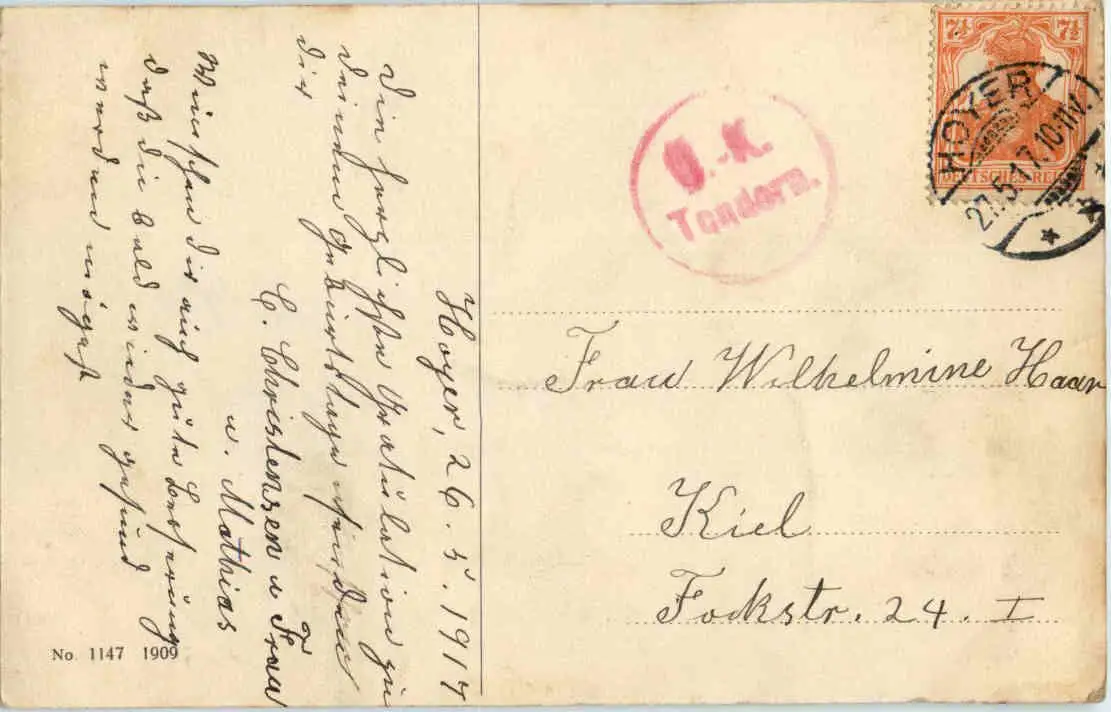 Hoyer, 26. 5. 1917
Die herzlichste Gratulation zu
deinem Geburtstage senden
dir
C. Christensen u Frau
u. Mathias
Wünschen dir auch gute Besserung
daß du bald wieder gesund
werden mögest
No. 1147 1909
Ü.-K.
Tondern.
7½ 7½
DEUTSCHES REICH
HOYER
27.5.17.10-11V.
Frau Wilhelmine Haar
Kiel
Fockstr. 24. I